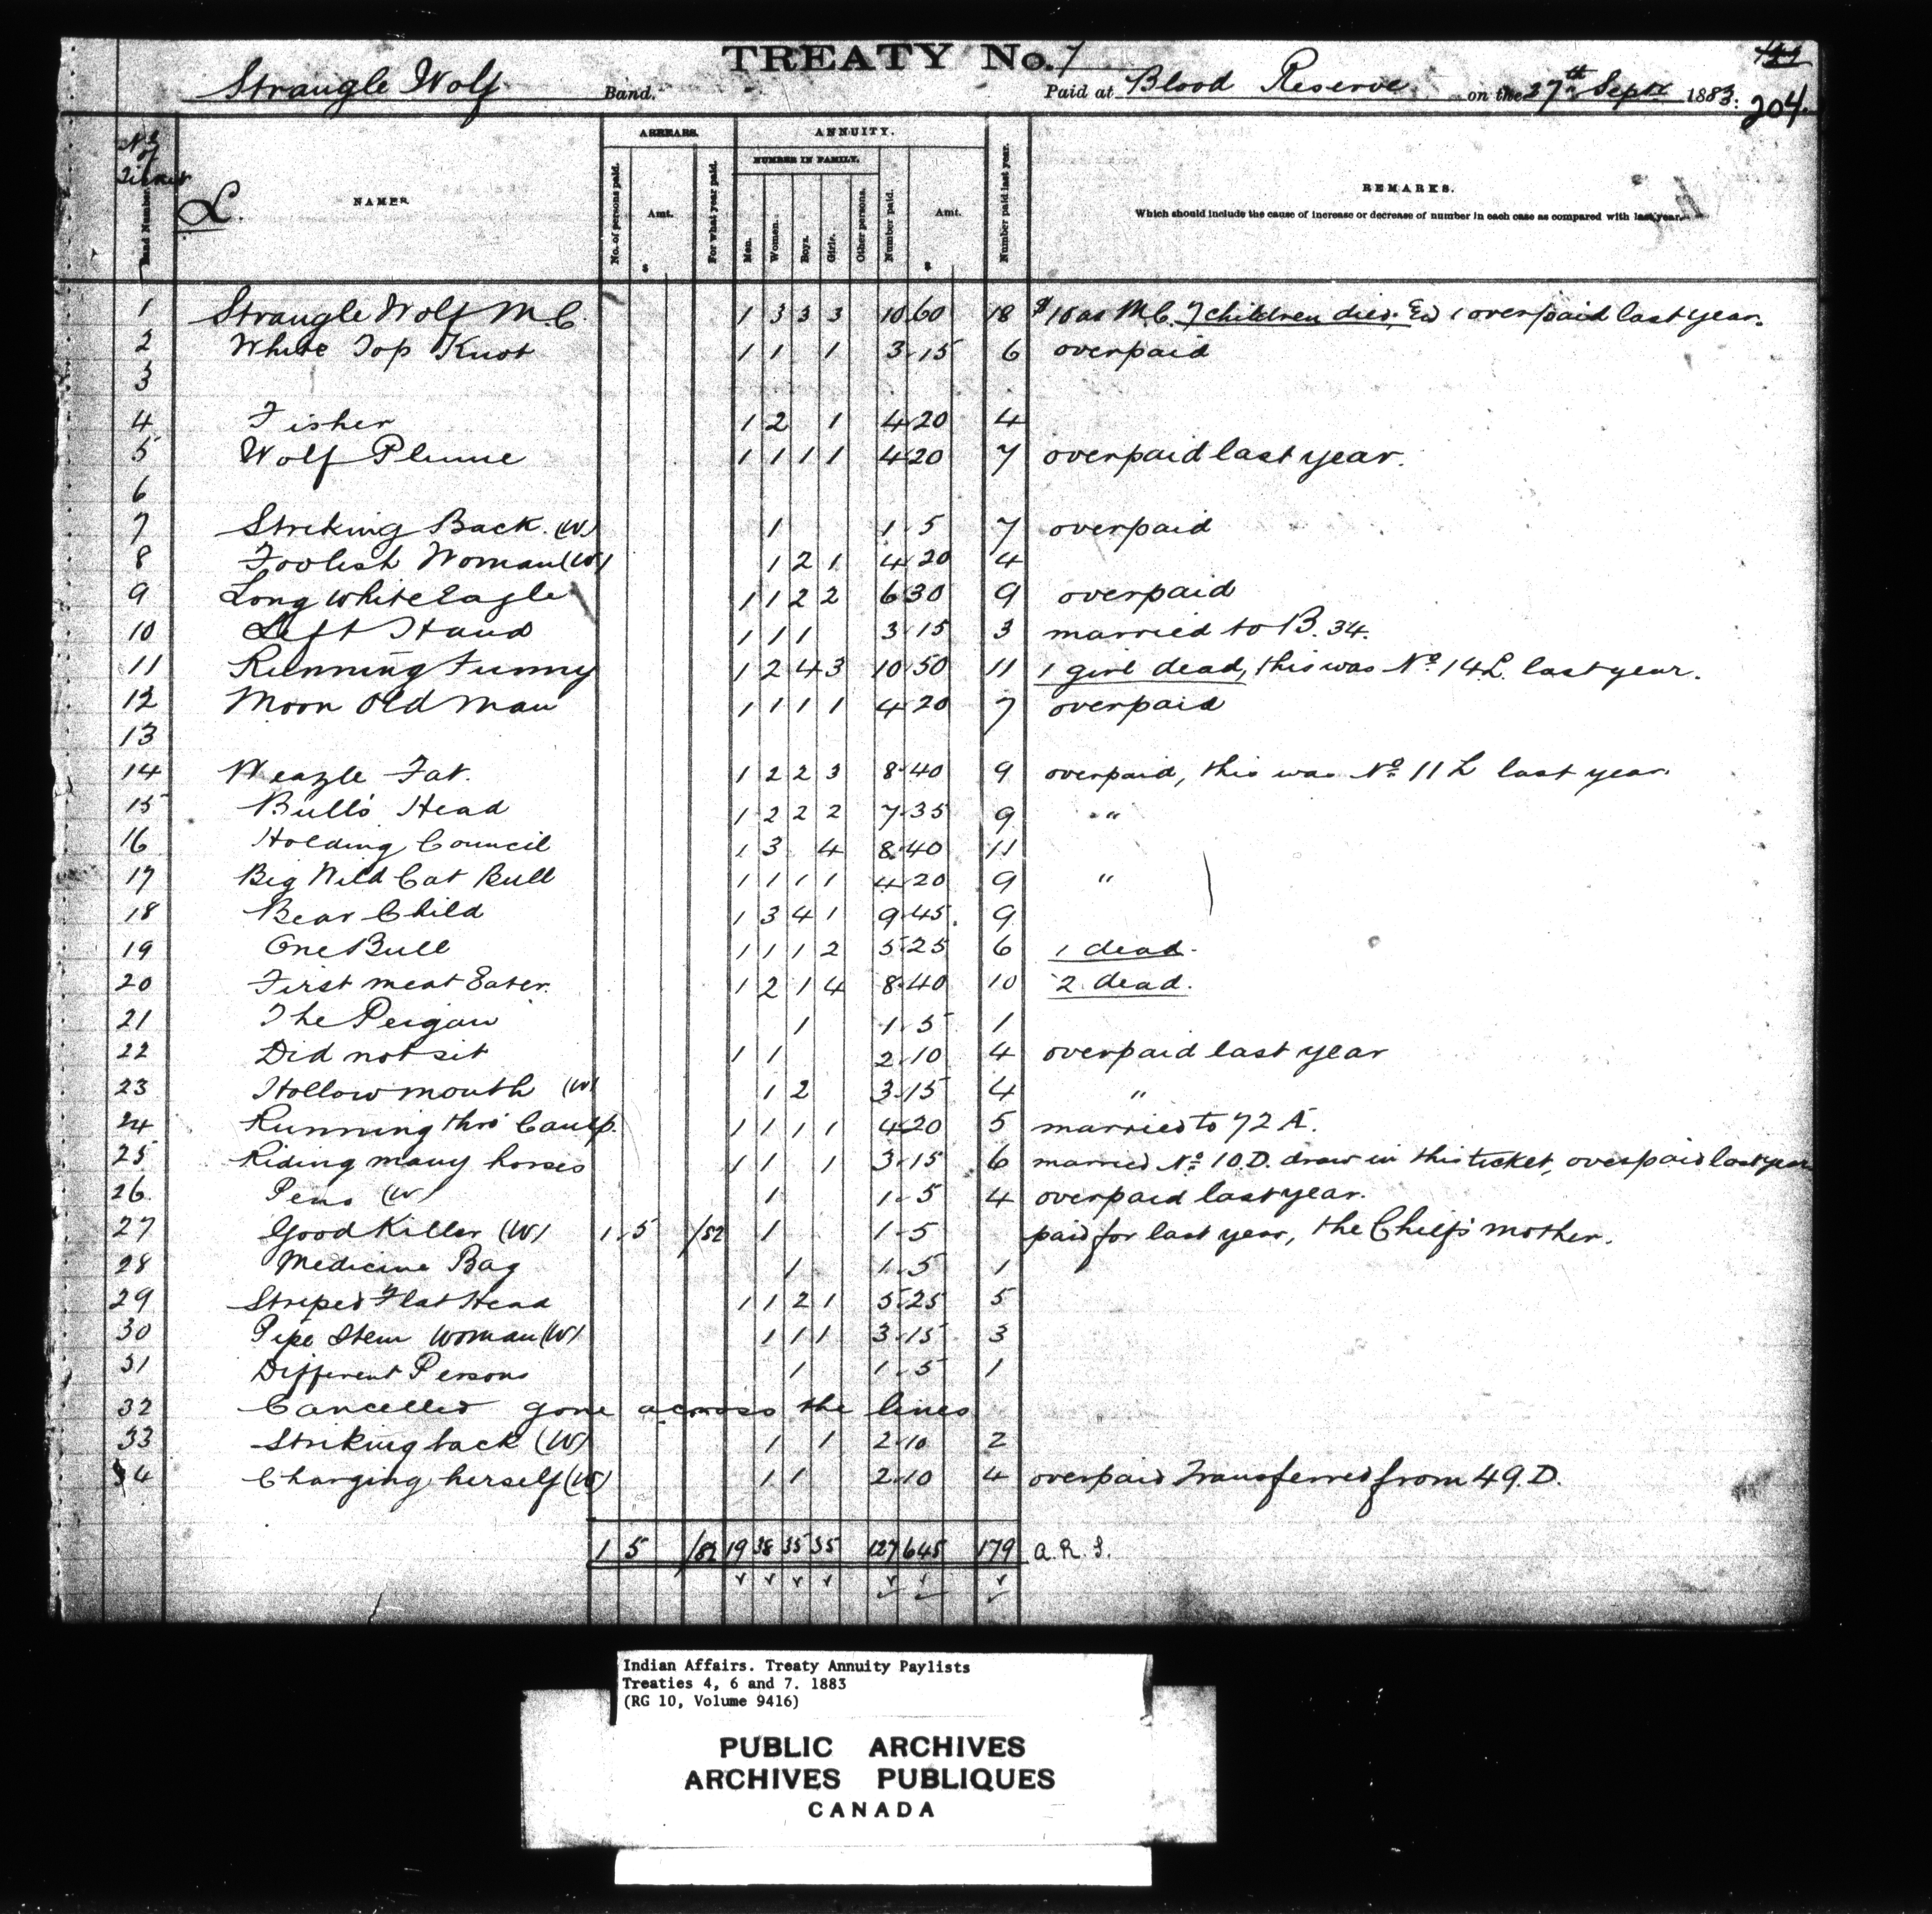 TREATY No. 7
Strangle Wolf Band. Paid at Blood Reserve on the 27th Septr 1883. 204.
No. of Ticket
Band Number.
L.
NAMES
ARREARS.
No. of persons paid.
Amt.
$
For what year paid.
ANNUITY.
NUMBER IN FAMILY.
Men.
Women.
Boys.
Girls.
Other persons.
Number paid.
Amt.
$
Number paid last year.
REMARKS.
Which should include the cause of increase or decrease of number in each case as compared with last year.
1 Strangle Wolf M.C. 1 3 3 3 10 60 18 $10 as M.C. 7 children died. 1 overpaid last year.
2 White Top Knot 1 1 1 3 15 6 overpaid
3
4 Fisher 1 2 1 4 20 4
5 Wolf Plume 1 1 1 1 4 20 7 overpaid last year.
6
7 Striking Back. (W) 1 1 5 7 overpaid
8 Foolish Woman (W) 1 2 1 4 20 4
9 Long White Eagle 1 1 2 2 6 30 9 overpaid
10 Left Hand 1 1 1 3 15 3 married to B. 34.
11 Running Funny 1 2 4 3 10 50 11 1 girl dead, this was No 14 L. last year.
12 Moon Old Man 1 1 1 1 4 20 7 overpaid
13
14 Weazle Fat. 1 2 2 3 8 40 9 overpaid, this was No 11 L last year.
15 Bull's Head 1 2 2 2 7 35 9 "
16 Holding Council 1 3 4 8 40 11
17 Big Wild Cat Bull 1 1 1 1 4 20 9 "
18 Bear Child 1 3 4 1 9 45 9
19 One Bull 1 1 1 2 5 25 6 1 dead.
20 First meat Eater. 1 2 1 4 8 40 10 2 dead.
21 The Peigan 1 1 5 1
22 Did not sit 1 1 2 10 4 overpaid last year
23 Hollow mouth (W) 1 2 3 15 4 "
24 Running thro' Camp. 1 1 1 1 4 20 5 married to 72 A.
25 Riding many horses 1 1 1 3 15 6 married No 10.D. draw in this ticket, overpaid last year
26 (W) 1 1 5 4 overpaid last year.
27 Good Killer (W) 1 5 /82 1 1 5 paid for last year, the Chief's mother.
28 Medicine Bag 1 1 5 1
29 Striped Flat Head 1 1 2 1 5 25 5
30 Pipe Stem Woman (W) 1 1 1 3 15 3
31 Different Persons 1 1 5 1
32 Cancelled gone across the lines
33 Striking back (W) 1 1 2 10 2
34 Charging herself (W) 1 1 2 10 4 overpaid Transferred from 49. D.
1 5 /82 19 38 35 35 127 645 179 a.R.S.
Indian Affairs. Treaty Annuity Paylists
Treaties 4, 6 and 7. 1883
(RG 10, Volume 9416)
PUBLIC ARCHIVES
ARCHIVES PUBLIQUES
CANADA